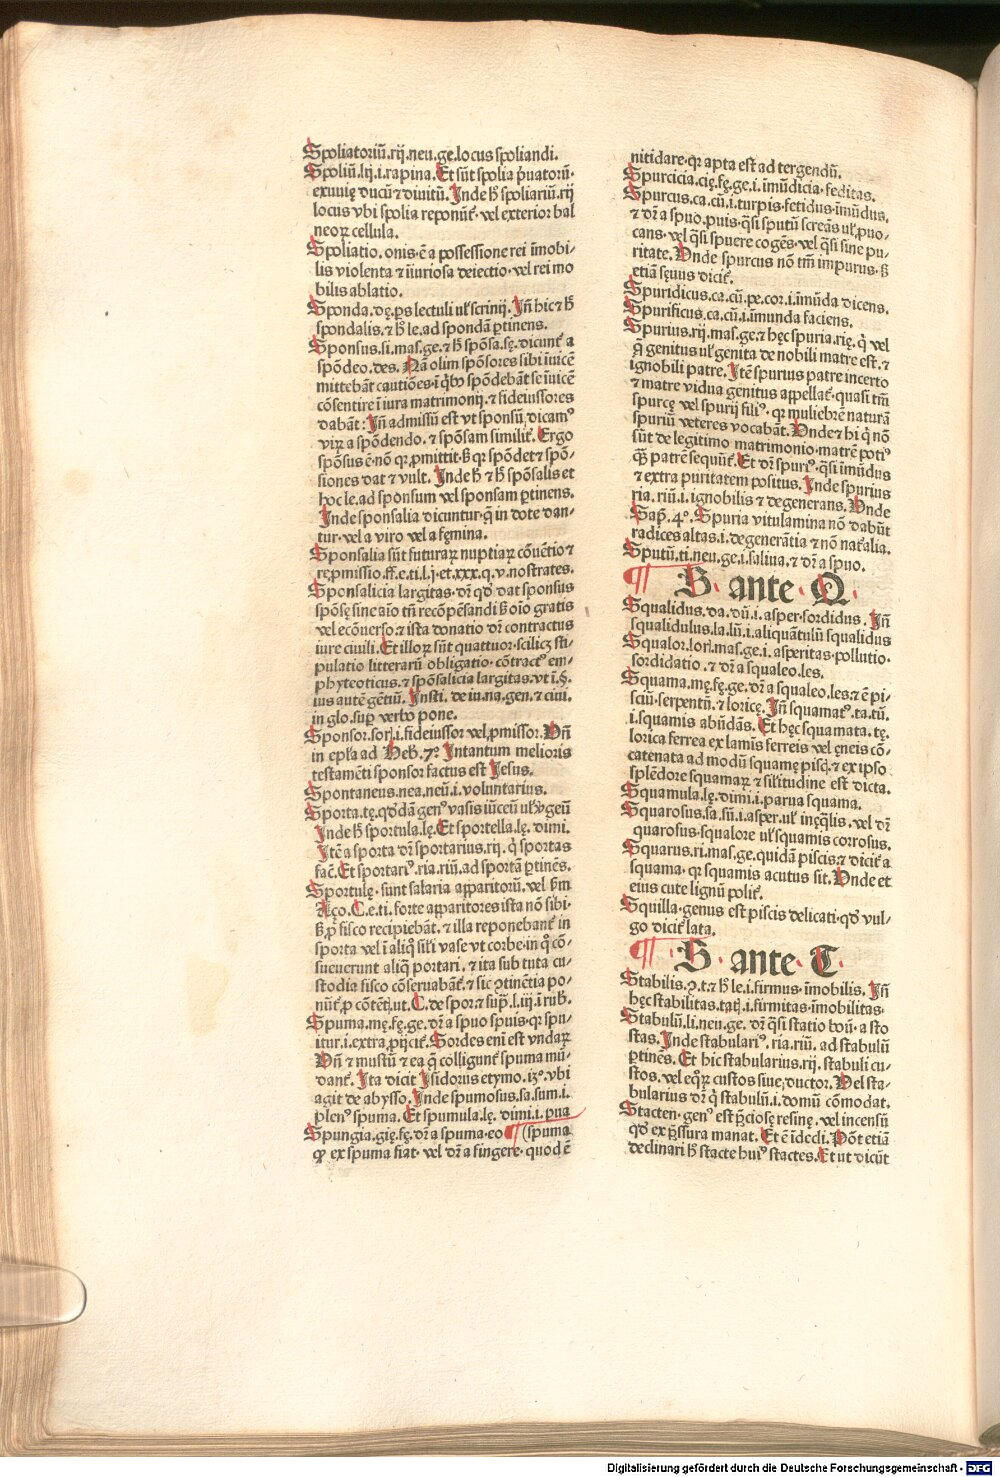 Spoliatoriū.rij.neu.ge.locus spoliandi.
Spoliū.lij.i.rapina.Et sūt spolia p̄uatorū.
exuuię ducū ⁊ diuitū.Inde h̄ spoliariū.rij
locus vbi spolia reponūt̄.vel exterior bal
neoꝝ cellula.
Spoliatio.onis.ē a possessione rei īmobi-
lis violenta ⁊ iniuriosa deiectio.vel rei mo
bilis ablatio.
Sponda.dę.ps lectuli ul' scrinij.Iñ hic ⁊ h̄
spondalis.⁊ h̄ le.ad spondā ꝑtinens.
Sponsus.si.mas.ge.⁊ h̄ spōsa.sę.dicunt̄ a
spōdeo.des.Nā olim spōsores sibi iuicē
mittebāt cautiōes.ī qibꝰ spōdebāt se iuicē
cōsentire ī iura matrimonij.⁊ fideiussores
dabāt:Iñ admissū est vt sponsū dicamꝰ
viꝝ a spōdendo.⁊ spōsam similit̄.Ergo
spōsus ē.nō qꝛ ꝓmittit.ß qꝛ spōdet ⁊ spō-
siones dat ⁊ vult.Inde h̄ ⁊ h̄ spōsalis et
hoc le.ad sponsum vel sponsam ꝑtinens.
Inde sponsalia dicuntur.q̄ in dote dan-
tur.vel a viro vel a fęmina.
Sponsalia sūt futuraꝝ nuptiaꝝ cōuētio ⁊
reꝓmissio.ff.e.ti.l.j.et.xxx.q.v.nostrates.
Sponsalicia largitas.dr̄ qd̄ dat sponsus
spōsę sine aīo tn̄ recōpēsandi ß oīo gratis
vel ecōuerso.⁊ ista donatio dr̄ contractus
iure ciuili.Et illoꝝ sūt quattuor.scilicꝫ sti-
pulatio litterarū obligatio.cōtractꝰ em-
phyteoticus.⁊ spōsalicia largitas.vt i.§.
ius autē gētiū.Insti.de iu.na.gen.⁊ ciui.
in glo.suꝑ verbo pone.
Sponsor.sorꝭ.i.fideiussor vel ꝓmissor.Vñ
in epl̄a ad Heb̄.7º.Intantum melioris
testamēti sponsor factus est Jesus.
Spontaneus.nea.neū.i.voluntarius.
Sporta.tę.qd̄dā genꝰ vasis
Inde h̄ sportula.lę.Et sportella.lę.dimi.
Itē a sporta dr̄ sportarius.rij.q̄ sportas
fac̄.Et sportariꝰ.ria.riū.ad sportā ꝑtinēs.
Sportulę.sunt salaria apparitorū.vel ßm
Aço.C.e.ti.forte apparitores ista nō sibi.
ß ꝓ fisco recipiebāt.⁊ illa reponebant̄ in
sporta vel ī aliq̄ sil'i vase vt corbe.in q̄ cō-
sueuerunt aliq̄ portari.⁊ ita sub tuta cu-
stodia fisco cōseruabāt̄.⁊ sic ꝯtinētia po-
nūt̄ ꝓ cōtētꝭ.ut.C.de spor.⁊ sup̄.l.iij.ī rub̄.
Spuma.mę.fę.ge.dr̄ a spuo spuis.qꝛ spu-
itur.i.extra ꝓijcit̄.Sordes eni est vndaꝝ
Vñ ⁊ mustū ⁊ ea q̄ colligunt̄ spuma mū-
dant̄.Ita dicit Isidorus etymo.iȝº.vbi
agit de abysso.Inde spumosus.sa.sum.i.
plenꝰ spuma.Et spumula.lę.dimi.i.ꝑua
Spungia.gię.fę.dr̄ a spuma.eo ¶ (spuma
qꝛ ex spuma fiat.vel dr̄ a fingere.quod ē
nitidare.qꝛ apta est ad tergendū.
Spurcicia.cię.fę.ge.i.imūdicia.feditas.
Spurcus.ca.cū.i.turpis.fetidus.īmūdus.
⁊ dr̄ a spuo.puis.q̄si sputū screās ul' ꝓuo-
cans.vel q̄si spuere cogēs.vel q̄si sine pu-
ritate.Vnde spurcus nō tm̄ impurus.ß
etiā sęuus dicit̄.
Spuridicus.ca.cū.pe.cor.i.īmūda dicens.
Spurificus.ca.cū.i.īmunda faciens.
Spurius.rij.mas.ge.⁊ hęc spuria.rię.q̄ vel
q̄ genitus ul' genita de nobili matre est.⁊
ignobili patre.Itē spurius patre incerto
⁊ matre vidua genitus appellat̄.quasi tm̄
spurcę vel spurij filiꝰ.qꝛ muliebrē naturā
spuriū veteres vocabāt.Vnde ⁊ hi q̄ nō
sūt de legitimo matrimonio.matrē potiꝰ
q̄ꝫ patrē sequūt̄.Et dr̄ spuriꝰ.q̄si īmūdus
⁊ extra puritatem positus.Inde spurius
ria.riū.i.ignobilis ⁊ degenerans.Vnde
Sap̄.4º.Spuria vitulamina nō dabūt
radices altas.i.degenerātia ⁊ nō nat̄alia.
Sputū.ti.neu.ge.i.saliua.⁊ dr̄ a spuo.
¶ S. ante Q.
Squalidus.da.dū.i.asper.sordidus.Iñ
squalidulus.la.lū.i.aliquātulū squalidus
Squalor.lorꝭ.mas.ge.i.asperitas.pollutio.
sordidatio.⁊ dr̄ a squaleo.les.
Squama.mę.fę.ge.dr̄ a squaleo.les.⁊ ē pi-
sciū.serpentū.⁊ loricę.Iñ squamatꝰ.ta.tū.
i.squamis abūdās.Et hęc squamata.tę.
lorica ferrea ex lamis ferreis vel ęneis cō-
catenata ad modū squamę piscꝭ.⁊ ex ipso
splēdore squamaꝝ ⁊ sil'itudine est dicta.
Squamula.lę.dimi.i.parua squama.
Squarosus.sa.sū.i.asper.ul' inęq̄lis.vel dr̄
quarosus.squalore ul' squamis corrosus.
Squarus.ri.mas.ge.quidā piscis.⁊ dicit̄ a
squama.qꝛ squamis acutus sit.Vnde et
eius cute lignū polit̄.
Squilla.genus est piscis delicati.qd̄ vul-
go dicit̄ lata.
¶ S. ante T.
Stabilis.ꝯ.⁊.⁊ h̄ le.i.firmus.īmobilis.Iñ
hęc stabilitas.tatꝭ.i.firmitas.īmobilitas.
Stabulū.li.neu.ge.dr̄ q̄si statio boū.a sto
stas.Inde stabulariꝰ.ria.riū.ad stabulū
ꝑtinēs.Et hic stabularius.rij.stabuli cu-
stos.vel eq̄ꝝ custos siue ductor.Vel sta-
bularius dr̄ q̄ stabulū.i.domū cōmodat.
Stacten.genꝰ est p̄ciosę resinę.vel incensū
qd̄ ex p̄ssura manat.Et ē idecl̄i.Pōt etiā
declinari h̄ stacte huiꝰ stactes.Et ut dicūt
Digitalisierung gefördert durch die Deutsche Forschungsgemeinschaft - DFG